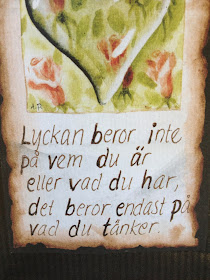 Lyckan beror inte
på vem du är
eller vad du har,
det beror endast på
vad du tänker.